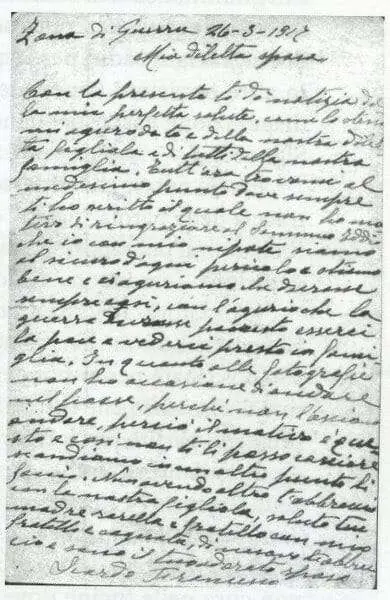 Zona di Guerra 26-3-1917
Mia diletta sposa
Con la presente ti dò notizia del
la mia perfetta salute, come lo stesso
mi auguro da te e della nostra dilet
ta figliola e di tutti della nostra
famiglia. Tutt'ora trovomi al
medesimo punto dove sempre
ti ho scritto il quale non ho mo
tivo di ringraziare il Sommo Iddio
che io con mio nipote siamo
al sicuro di qui pericolo e stiamo
bene e ci auguriamo che durasse
sempre così, con l'augurio che la
guerra durasse poco esserci
la pace e vederci presto in fami
glia. In quanto alle fotografie
non ho occasione di andare
nel paese, perché non lasciano
andare, perciò il motivo è que
sto e così non ti posso
se andiamo in un altro punto si
Non avendo altro t'abbraccio
con la nostra figliola, saluto tua
madre sorella e fratello con mio
fratello e cognata, di nuovo t'abbrac
cio e sono il tuo adorato sposo
Francesco